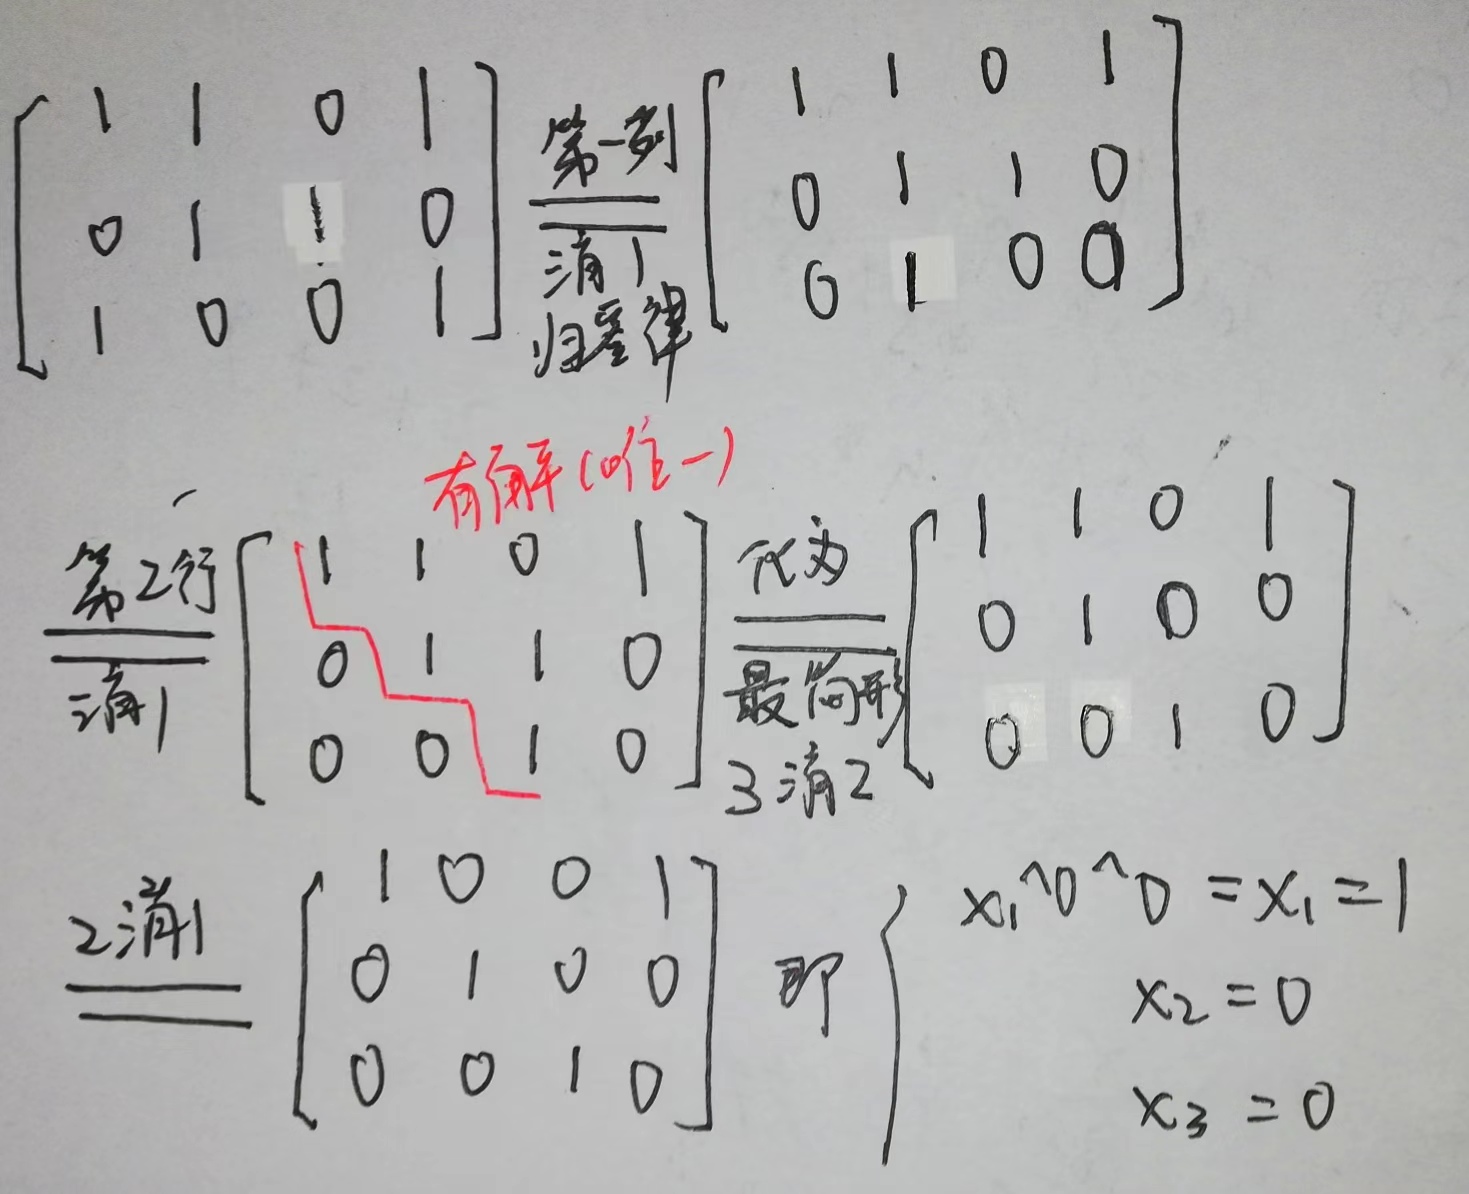 1 1 0 1
0 1 1 0
1 0 0 1
第一列
消1
归零律
1 1 0 1
0 1 1 0
0 1 0 0
有解(唯一)
第2行
消1
1 1 0 1
0 1 1 0
0 0 1 0
化为
最简形
3消2
1 1 0 1
0 1 0 0
0 0 1 0
2消1
1 0 0 1
0 1 0 0
0 0 1 0
即
x₁^0^0=x₁=1
x₂=0
x₃=0